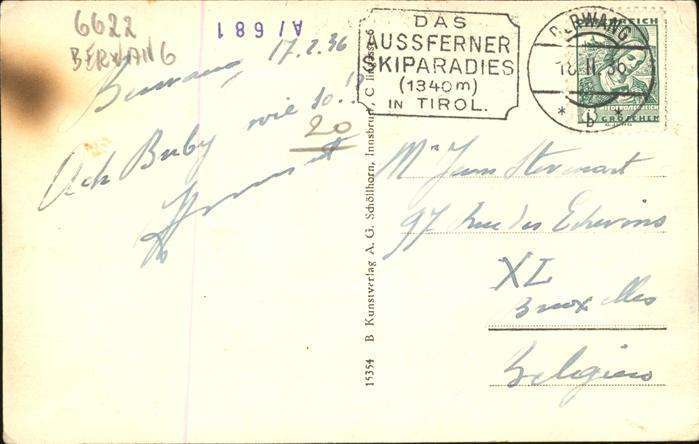 6622
BERWANG
A/681
Berwang, 17.2.36
Ach Buby wie so..!?
20
15354 B Kunstverlag A. G. Schöllhorn, Innsbruck, C
DAS
AUSSFERNER
SKIPARADIES
(1340 m)
IN TIROL.
BERWANG
18. II. 36
* b
ÖSTERREICH
GROSCHEN
Mr Jean
97 Rue des Echevins
XL
Bruxelles
Belgien